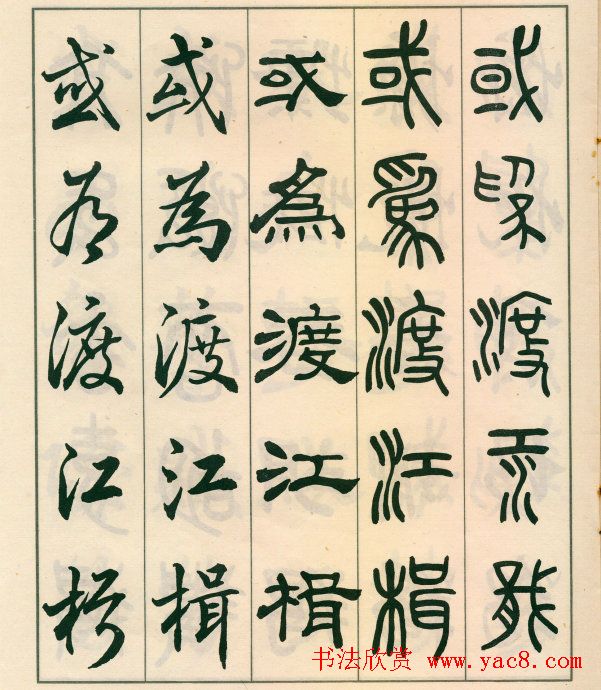 或為渡江楫
或為渡江楫
或為渡江楫
或為渡江楫
或為渡江楫
书法欣赏 www.yac8.com